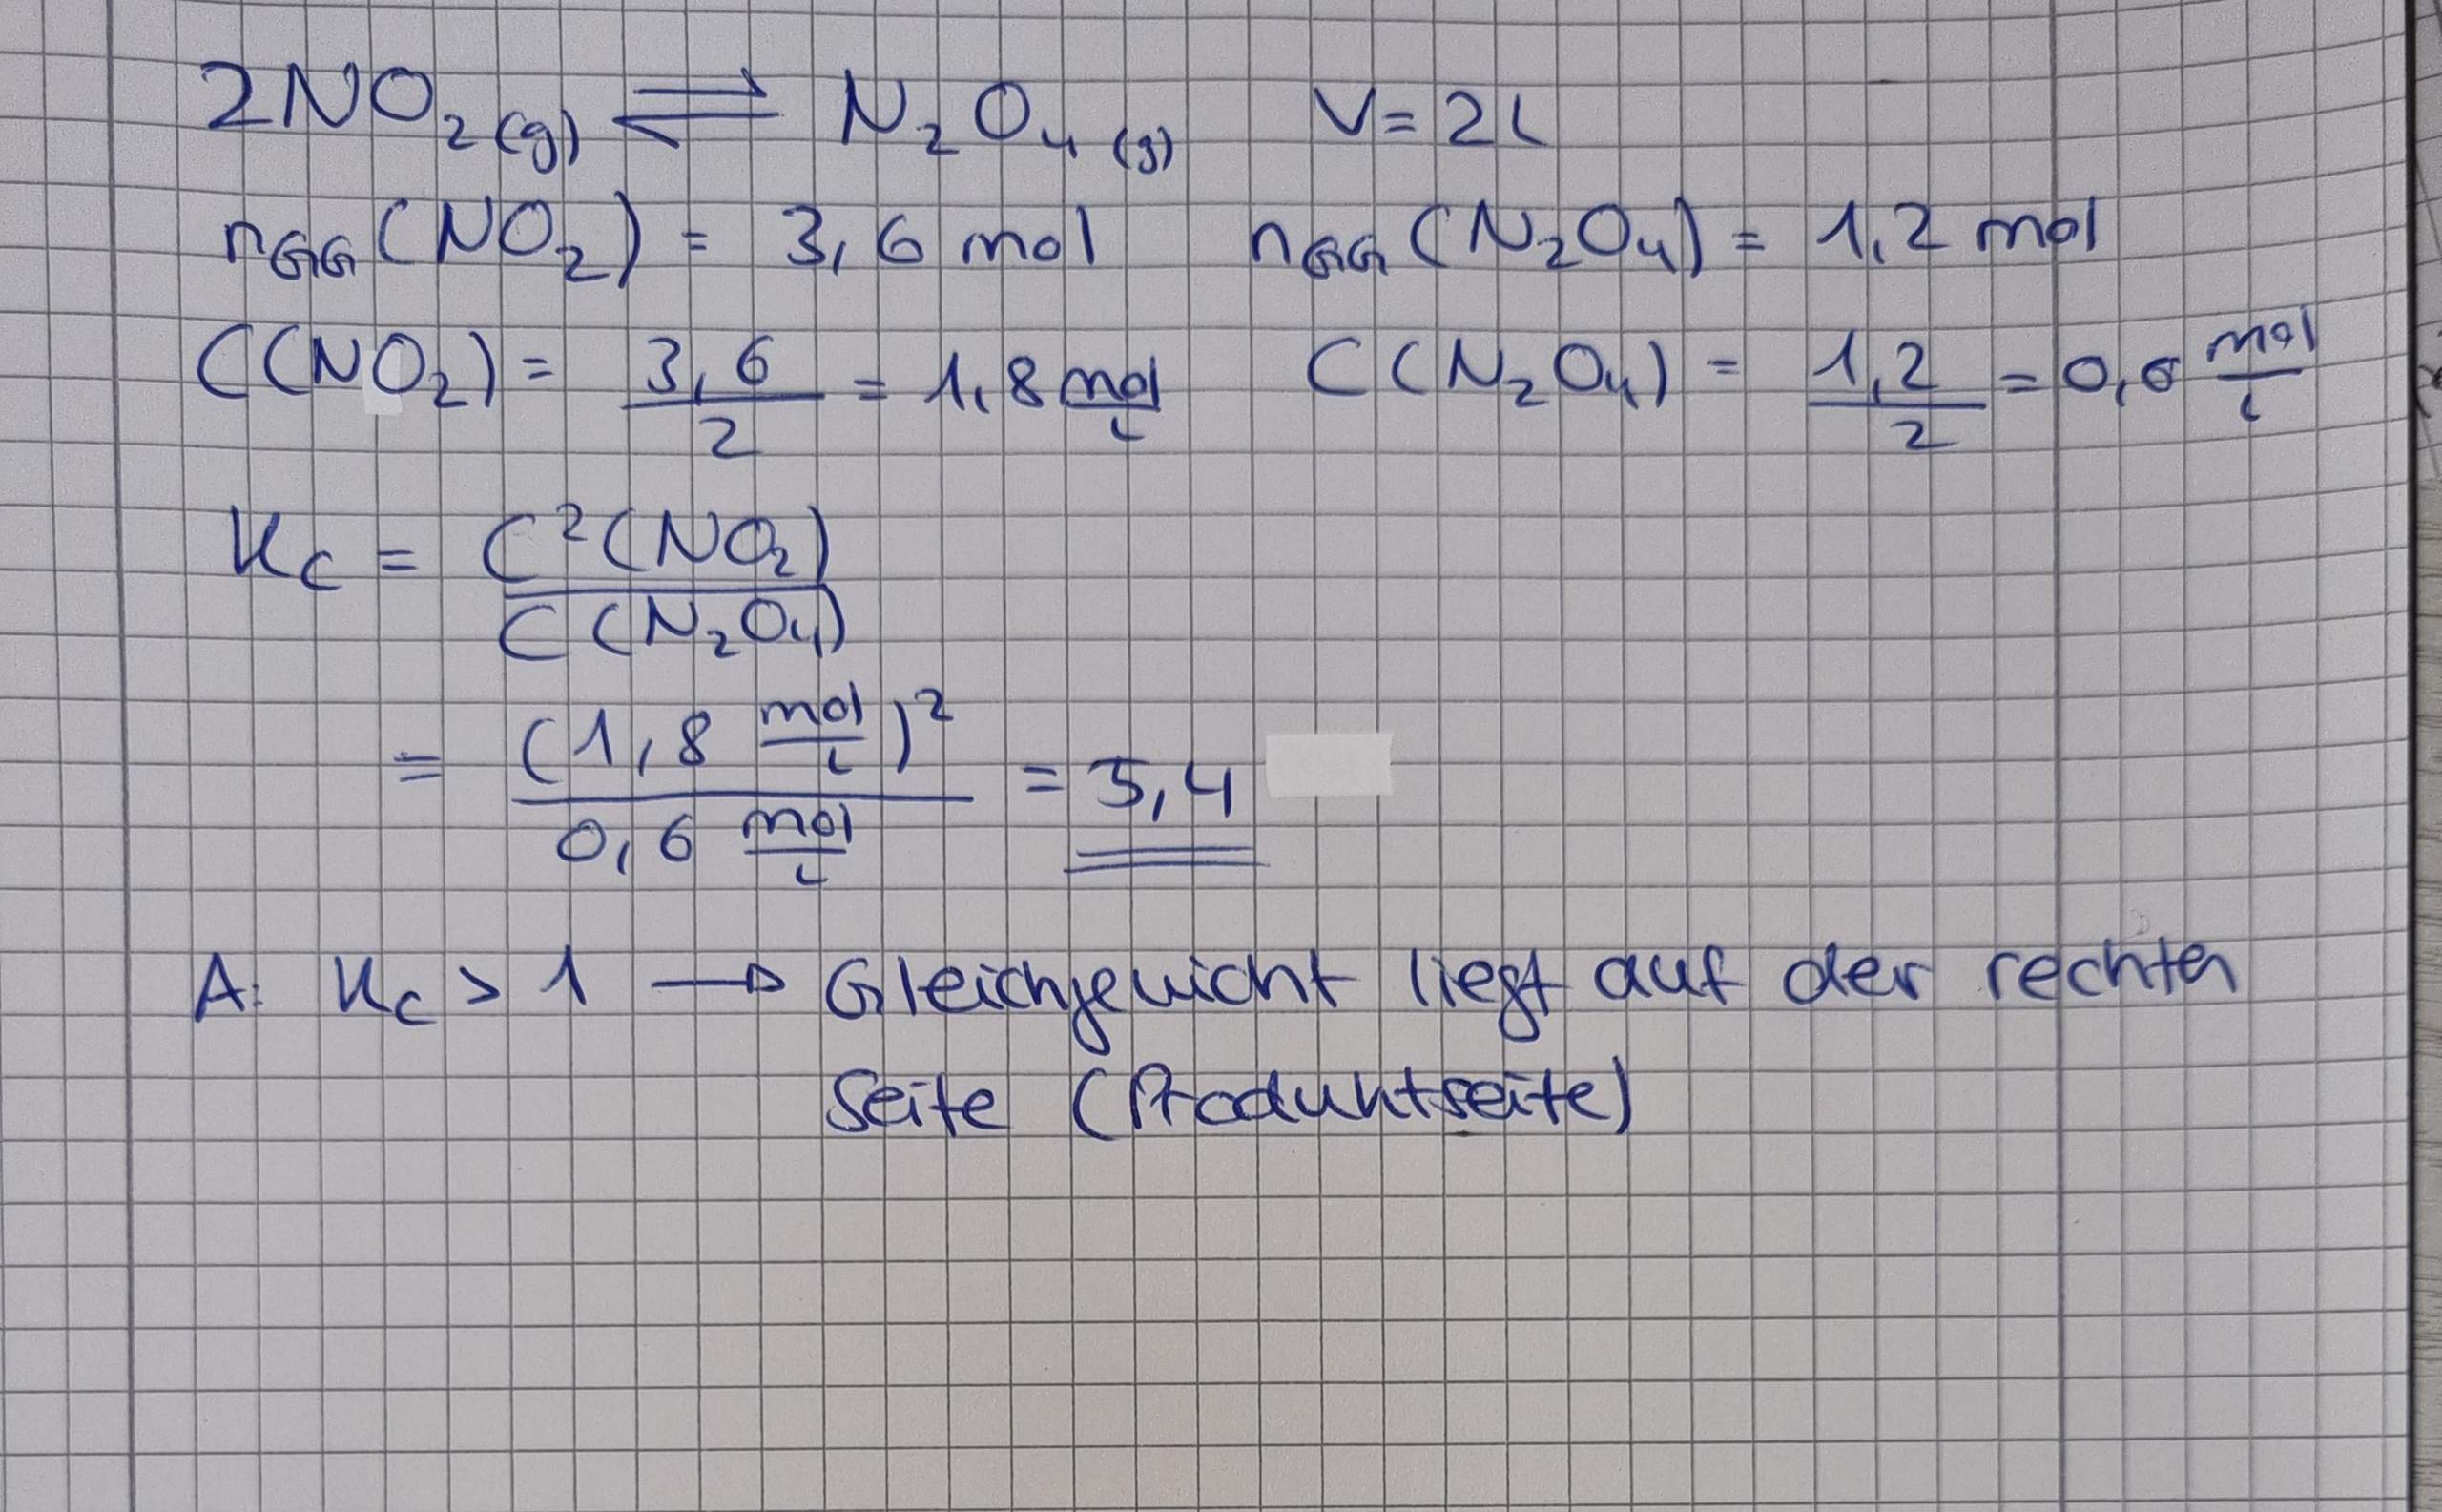 2NO₂(g) ⇌ N₂O₄(g) V = 2L
nGG(NO₂) = 3,6 mol nGG(N₂O₄) = 1,2 mol
C(NO₂) = 3,6/2 = 1,8 mol/L C(N₂O₄) = 1,2/2 = 0,6 mol/L
Kc = C²(NO₂)/C(N₂O₄)
= (1,8 mol/L)²/0,6 mol/L = 5,4
A: Kc > 1 → Gleichgewicht liegt auf der rechten
Seite (Produktseite)